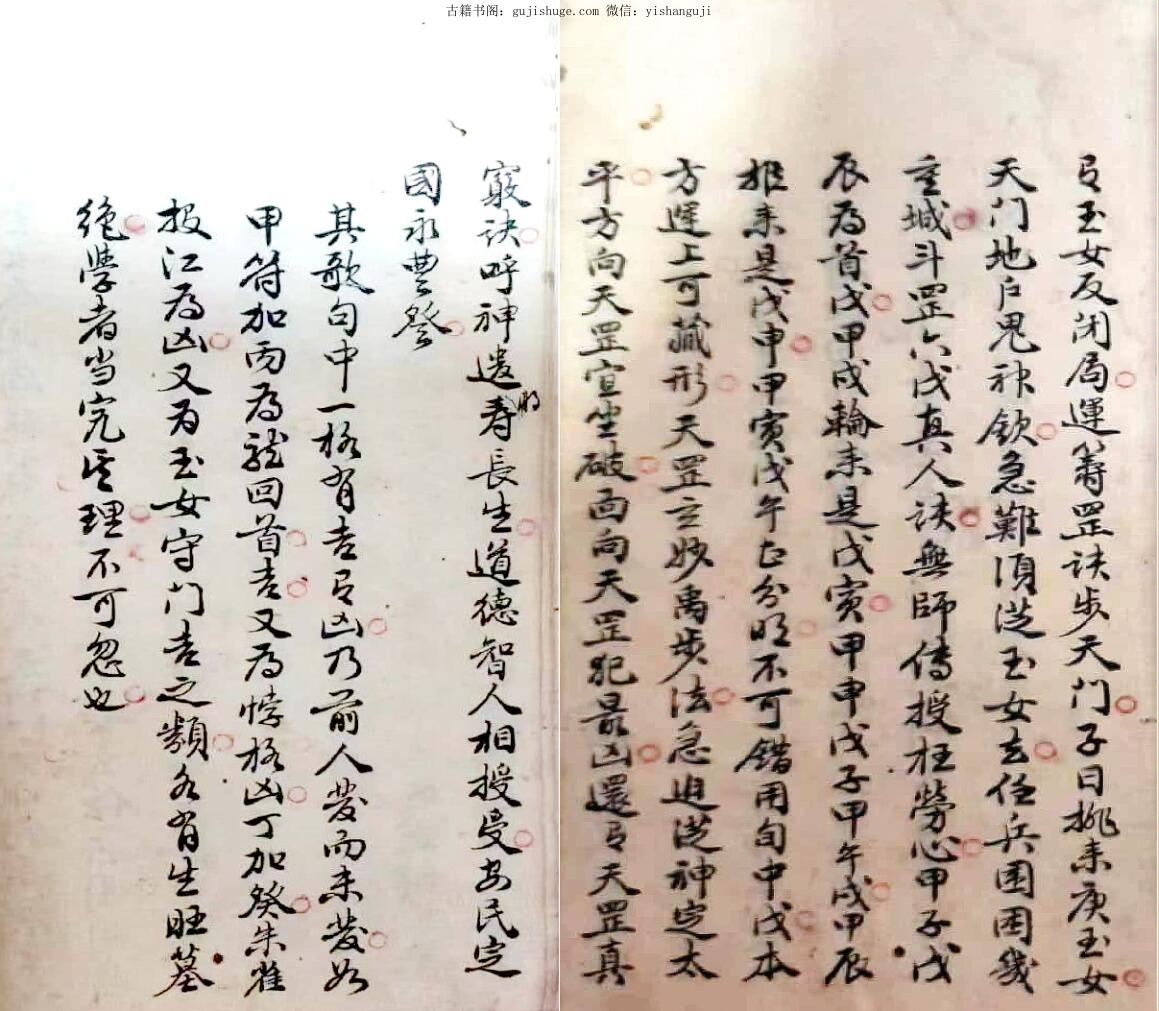 古籍书阁：gujishuge.com 微信：yishanguji
有玉女反闭局運籌罡诀步天门子日挑来庚玉女
天门地户鬼神欽急難須從玉女去任兵围困幾
重城斗罡六戊真人诀無師傳授枉勞心甲子戊
辰为首戊甲戌輪来是戊寅甲申戊子甲午戌甲辰
推来是戊申甲寅戊午上分明不可錯用旬中戊本
方遅上可藏形天罡立妙禹步法急迫從神定太
平方向天罡宜坐破面向天罡犯最凶還有天罡真
竅诀呼神遣将寿長生道德智人相授受安民定
國永豐登
其歌句中一格有吉有凶乃前人發而未發如
甲符加丙为龍回首吉又为悖格凶丁加癸朱雀
投江为凶又为玉女守门吉之類各有生旺墓
绝學者当究其理不可忽也